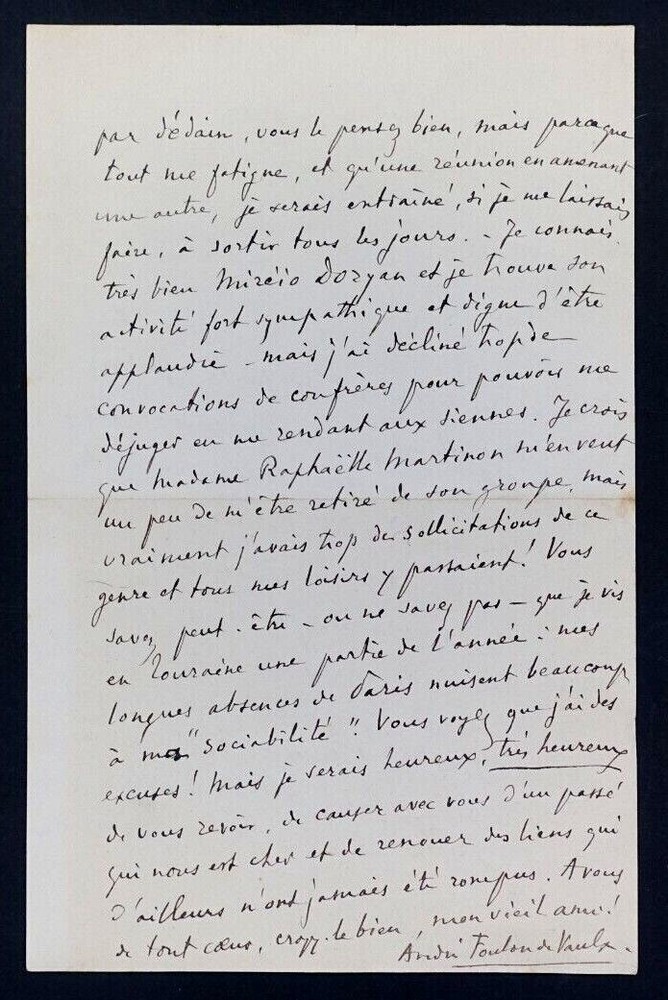 par dédain, vous le pensez bien, mais parceque
tout me fatigue, et qu'une réunion en amenant
une autre, je serais entraîné, si je me laissais
faire, à sortir tous les jours. - Je connais
très bien Mircio Dozyan et je trouve son
activité fort sympathique et digne d'être
applaudie - mais j'ai décliné trop de
convocations de confrères pour pouvoir me
déjuger en me rendant aux siennes. Je crois
que Madame Raphaëlle Martinon m'en veut
un peu de m'être retiré de son groupe, mais
vraiment j'avais trop de sollicitations de ce
genre et tous mes loisirs y passaient ! Vous
savez peut-être - ou ne savez pas - que je vis
en Touraine une partie de l'année : mes
longues absences de Paris nuisent beaucoup
à ma "sociabilité". Vous voyez que j'ai des
excuses ! Mais je serais heureux, très heureux
de vous revoir, de causer avec vous d'un passé
qui nous est cher et de renouer des liens qui
d'ailleurs n'ont jamais été rompus. A vous
de tout cœur, croyez-le bien, mon vieil ami !
André Foulon de Vaulx.